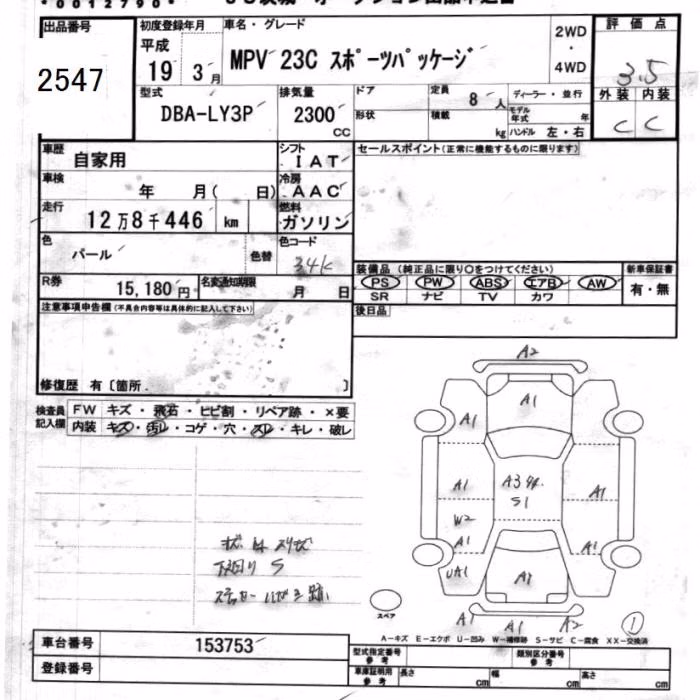 出品番号
2547
初度登録年月
平成
19 3月
車名・グレード
MPV 23C スポーツパッケージ
2WD
・
4WD
評価点
3.5
外装 内装
C C
型式
DBA-LY3P
排気量
2300
CC
ドア
形状
定員
8人
積載
kg
ディーラー・並行
モデル
年式 年
ハンドル 左・右
車歴
自家用
シフト
IAT
車検
年 月( 日)
冷房
AAC
走行
12万8千446 km
燃料
ガソリン
色
パール
色替
色コード
34K
R券
15,180円
名変通知期限
月 日
セールスポイント(正常に機能するものに限ります)
装備品(純正品に限り○をつけてください)
PS PW ABS エアB AW
SR ナビ TV カワ
新車保証書
有・無
後日品
注意事項申告欄(不具合内容等は具体的に記入して下さい)
修復歴 有〔箇所. 〕
検査員
記入欄
FW キズ・飛石・ヒビ割・リペア跡・×要
内装 キズ・汚レ・コゲ・穴・スレ・キレ・破レ
A2
A1
A1
A1
A1
W2
A1
UA1
S1
A1
A1
A1
A1
A1
A2
下回り S
スペア
1
A-キズ E-エクボ U-凹み W-補修跡 S-サビ C-腐食 XX-交換済
車台番号
153753
登録番号
型式指定番号
参考
類別区分番号
参考
車庫証明用
参考
長さ cm
幅 cm
高さ cm